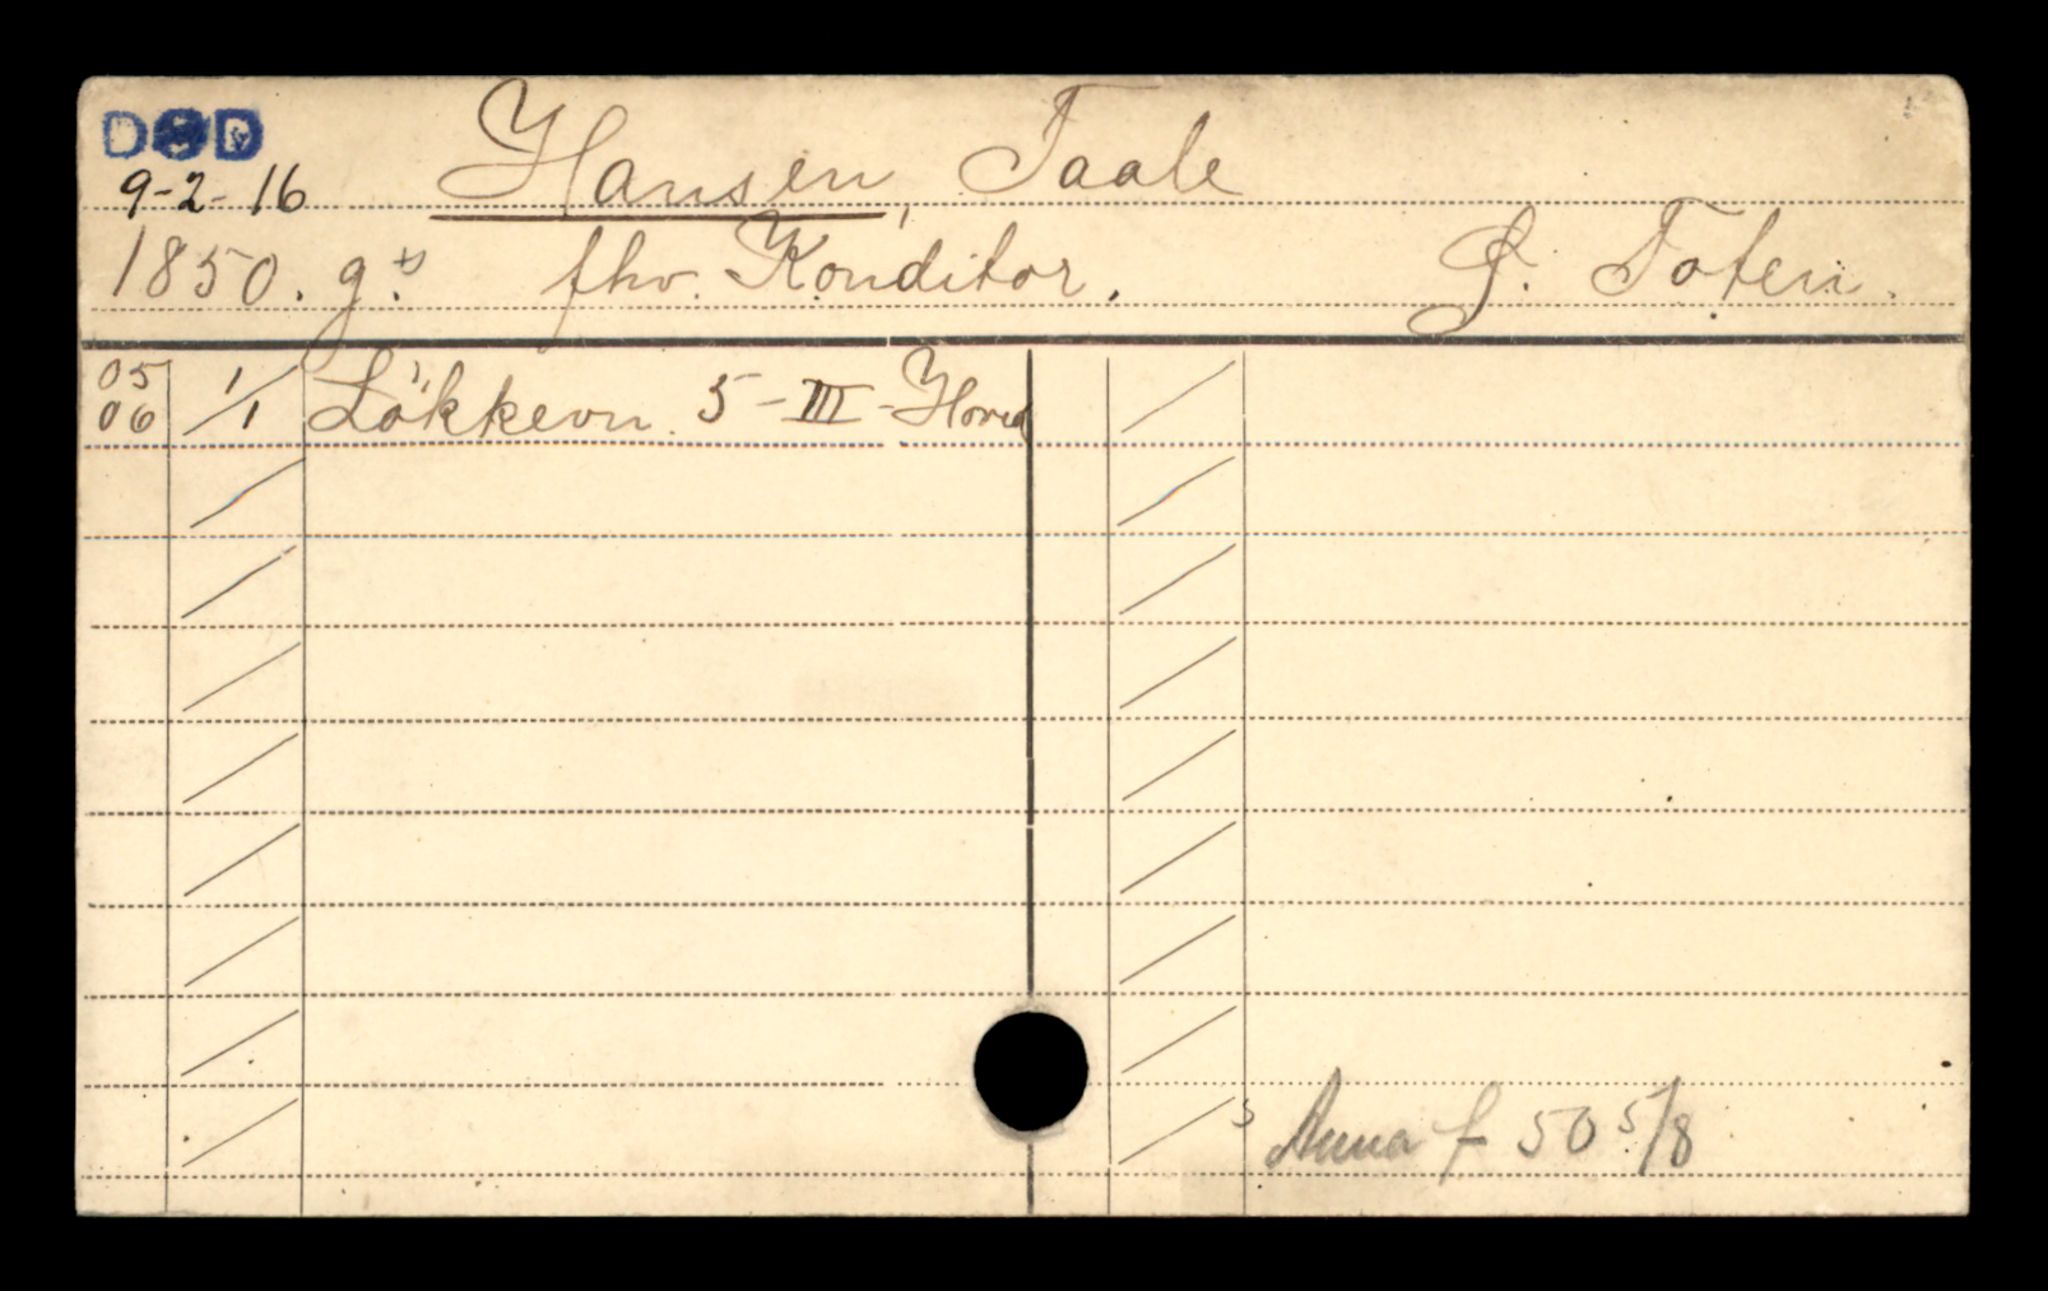 DØD
9-2-16 Hansen, Taale
1850. g.s fhv. Konditor. J. Toten.
05
06 1/1 Lökkevn. 5-III-Hoved
Anna f 50 5/8